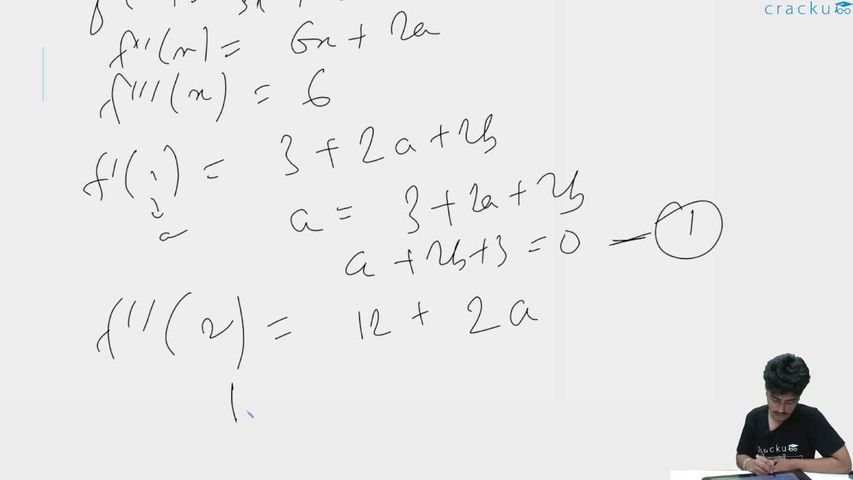 cracku
f''(x) = 6x + 2a
f'''(x) = 6
f'(1) = 3 + 2a + 2b
a
a = 3 + 2a + 2b
a + 2b + 3 = 0 — 1
f''(2) = 12 + 2a
cracku